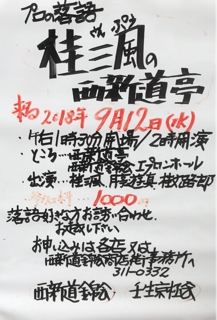 プロの落語
桂三風の
さんぷう
西新道亭
来る2018年9月12日(水)
・午后1時30分開場/2時開演
・ところ…西新道亭
西新道錦会エフロンホール
・出演…桂三風、月亭遊真、桂
1000円
落語好きな方お誘い合わせ
お越し下さい
お申し込みは各店又は
西新道錦商店街事務所へ
311-0332
西新道錦会 壬生京極会